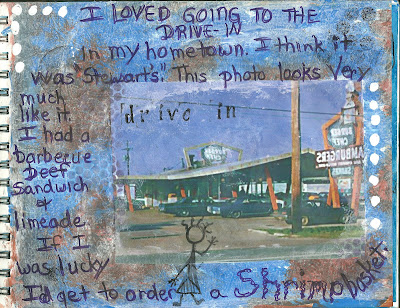 I LOVED GOING TO THE
DRIVE-IN
in my hometown. I think it
was "Stewart's." This photo looks very
much
like it.
I had a
barbecue
beef
sandwich
&
limeade.
If I
was lucky
I'd get to order a Shrimp basket.
drive in
HAMBURGERS